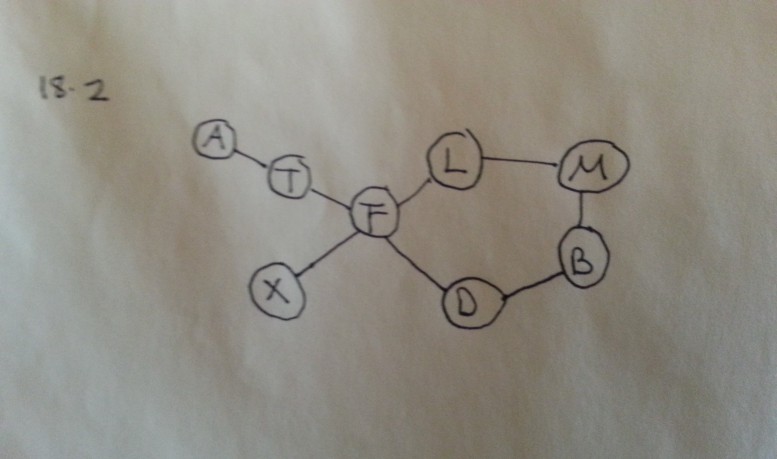 18.2
A
T
F
L
M
X
D
B